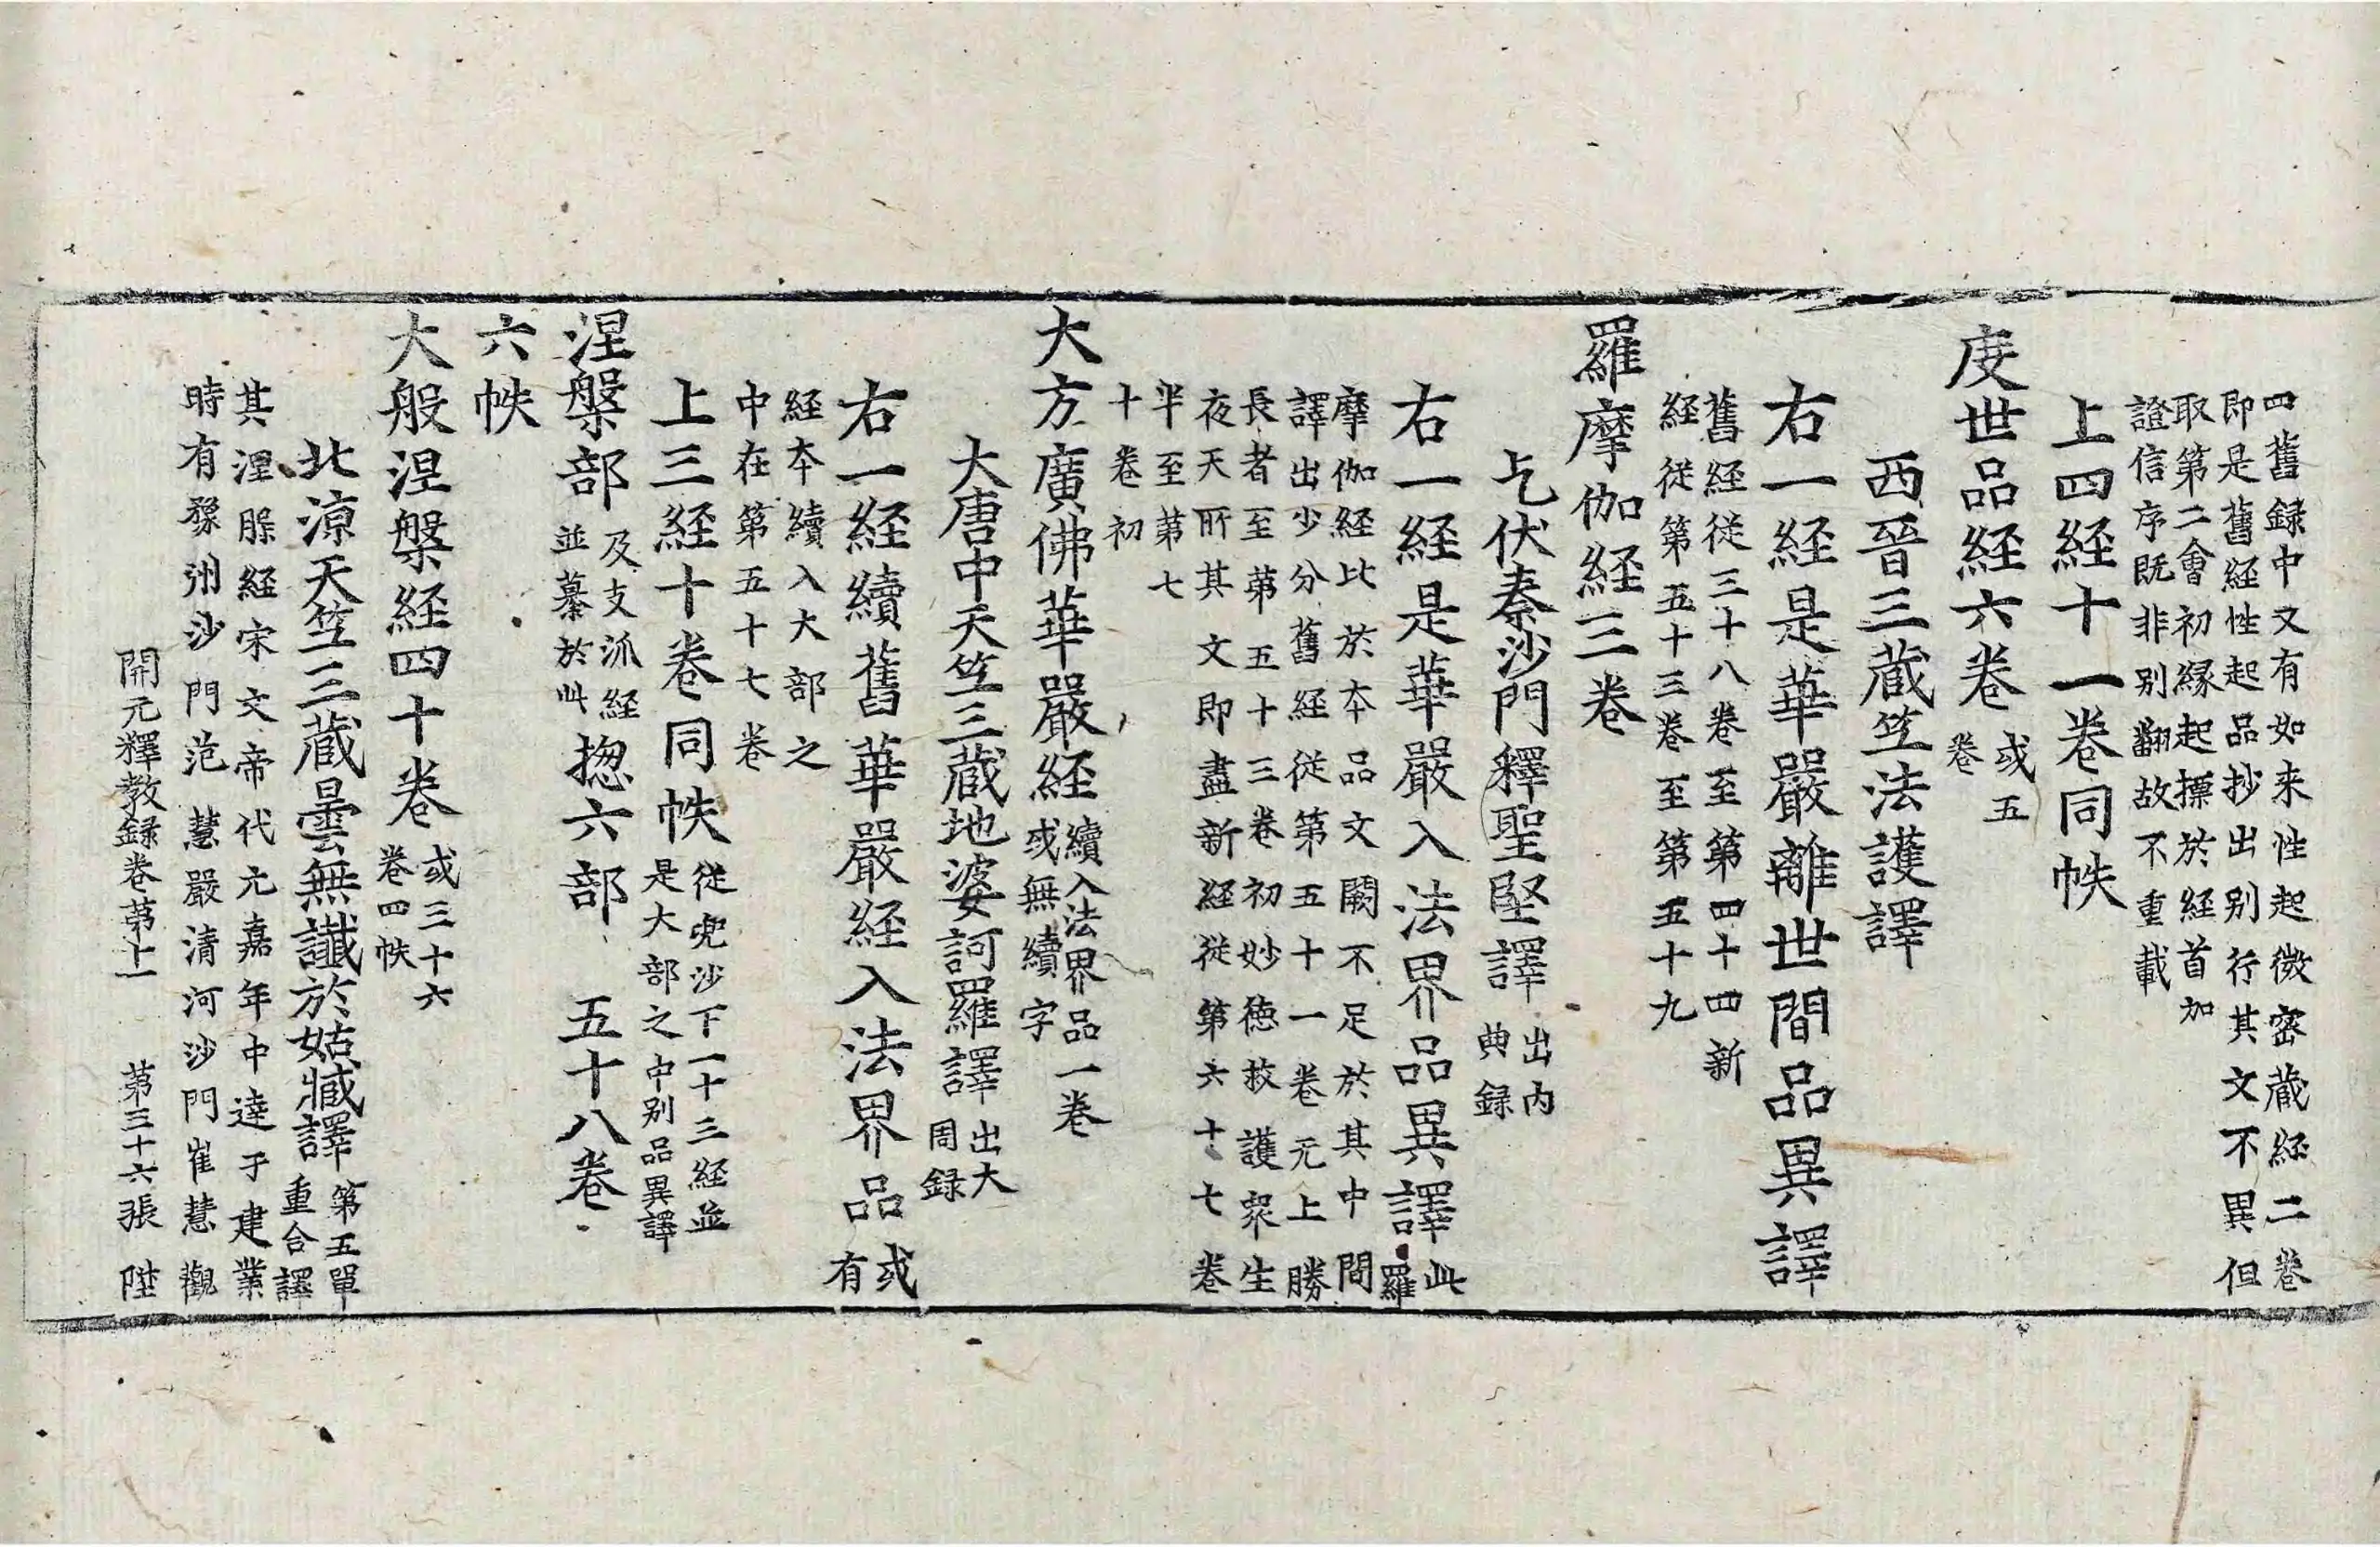 四舊録中又有如来性起微密蔵経二巻
即是舊経性起品抄出别行其文不異但
取第二會初縁起摽於経首加
證信序既非别翻故不重載
上四経十一巻同帙
度世品経六巻 或五
巻
西晉三蔵竺法護譯
右一経是華嚴離世間品異譯
舊経従三十八巻至第四十四新
経従第五十三巻至第五十九
羅摩伽経三巻
乞伏秦沙門釋聖堅譯 出内
典録
右一経是華嚴入法界品異譯 此
羅
摩伽経比於本品文闕不足於其中間
譯出少分舊経従第五十一巻元上勝
長者至第五十三巻初妙徳救護衆生
夜天所其文即盡新経従第六十七巻
半至第七
十巻初
大方廣佛華嚴経 續入法界品一巻
或無續字
大唐中天竺三蔵地婆訶羅譯 出大
周録
右一経續舊華嚴経入法界品 或
有
経本續入大部之
中在第五十七巻
上三経十巻同帙 従兜沙下一十三経並
是大部之中别品異譯
涅槃部 及支泒経
並纂於此 揔六部 五十八巻
六帙
大般涅槃経四十巻 或三十六
巻四帙
北涼天竺三蔵曇無讖於姑臧譯 第五單
重合譯
其涅槃経宋文帝代元嘉年中達于建業
時有豫州沙門范慧嚴清河沙門崔慧觀
開元釋教録巻第十一 第三十六張 陞